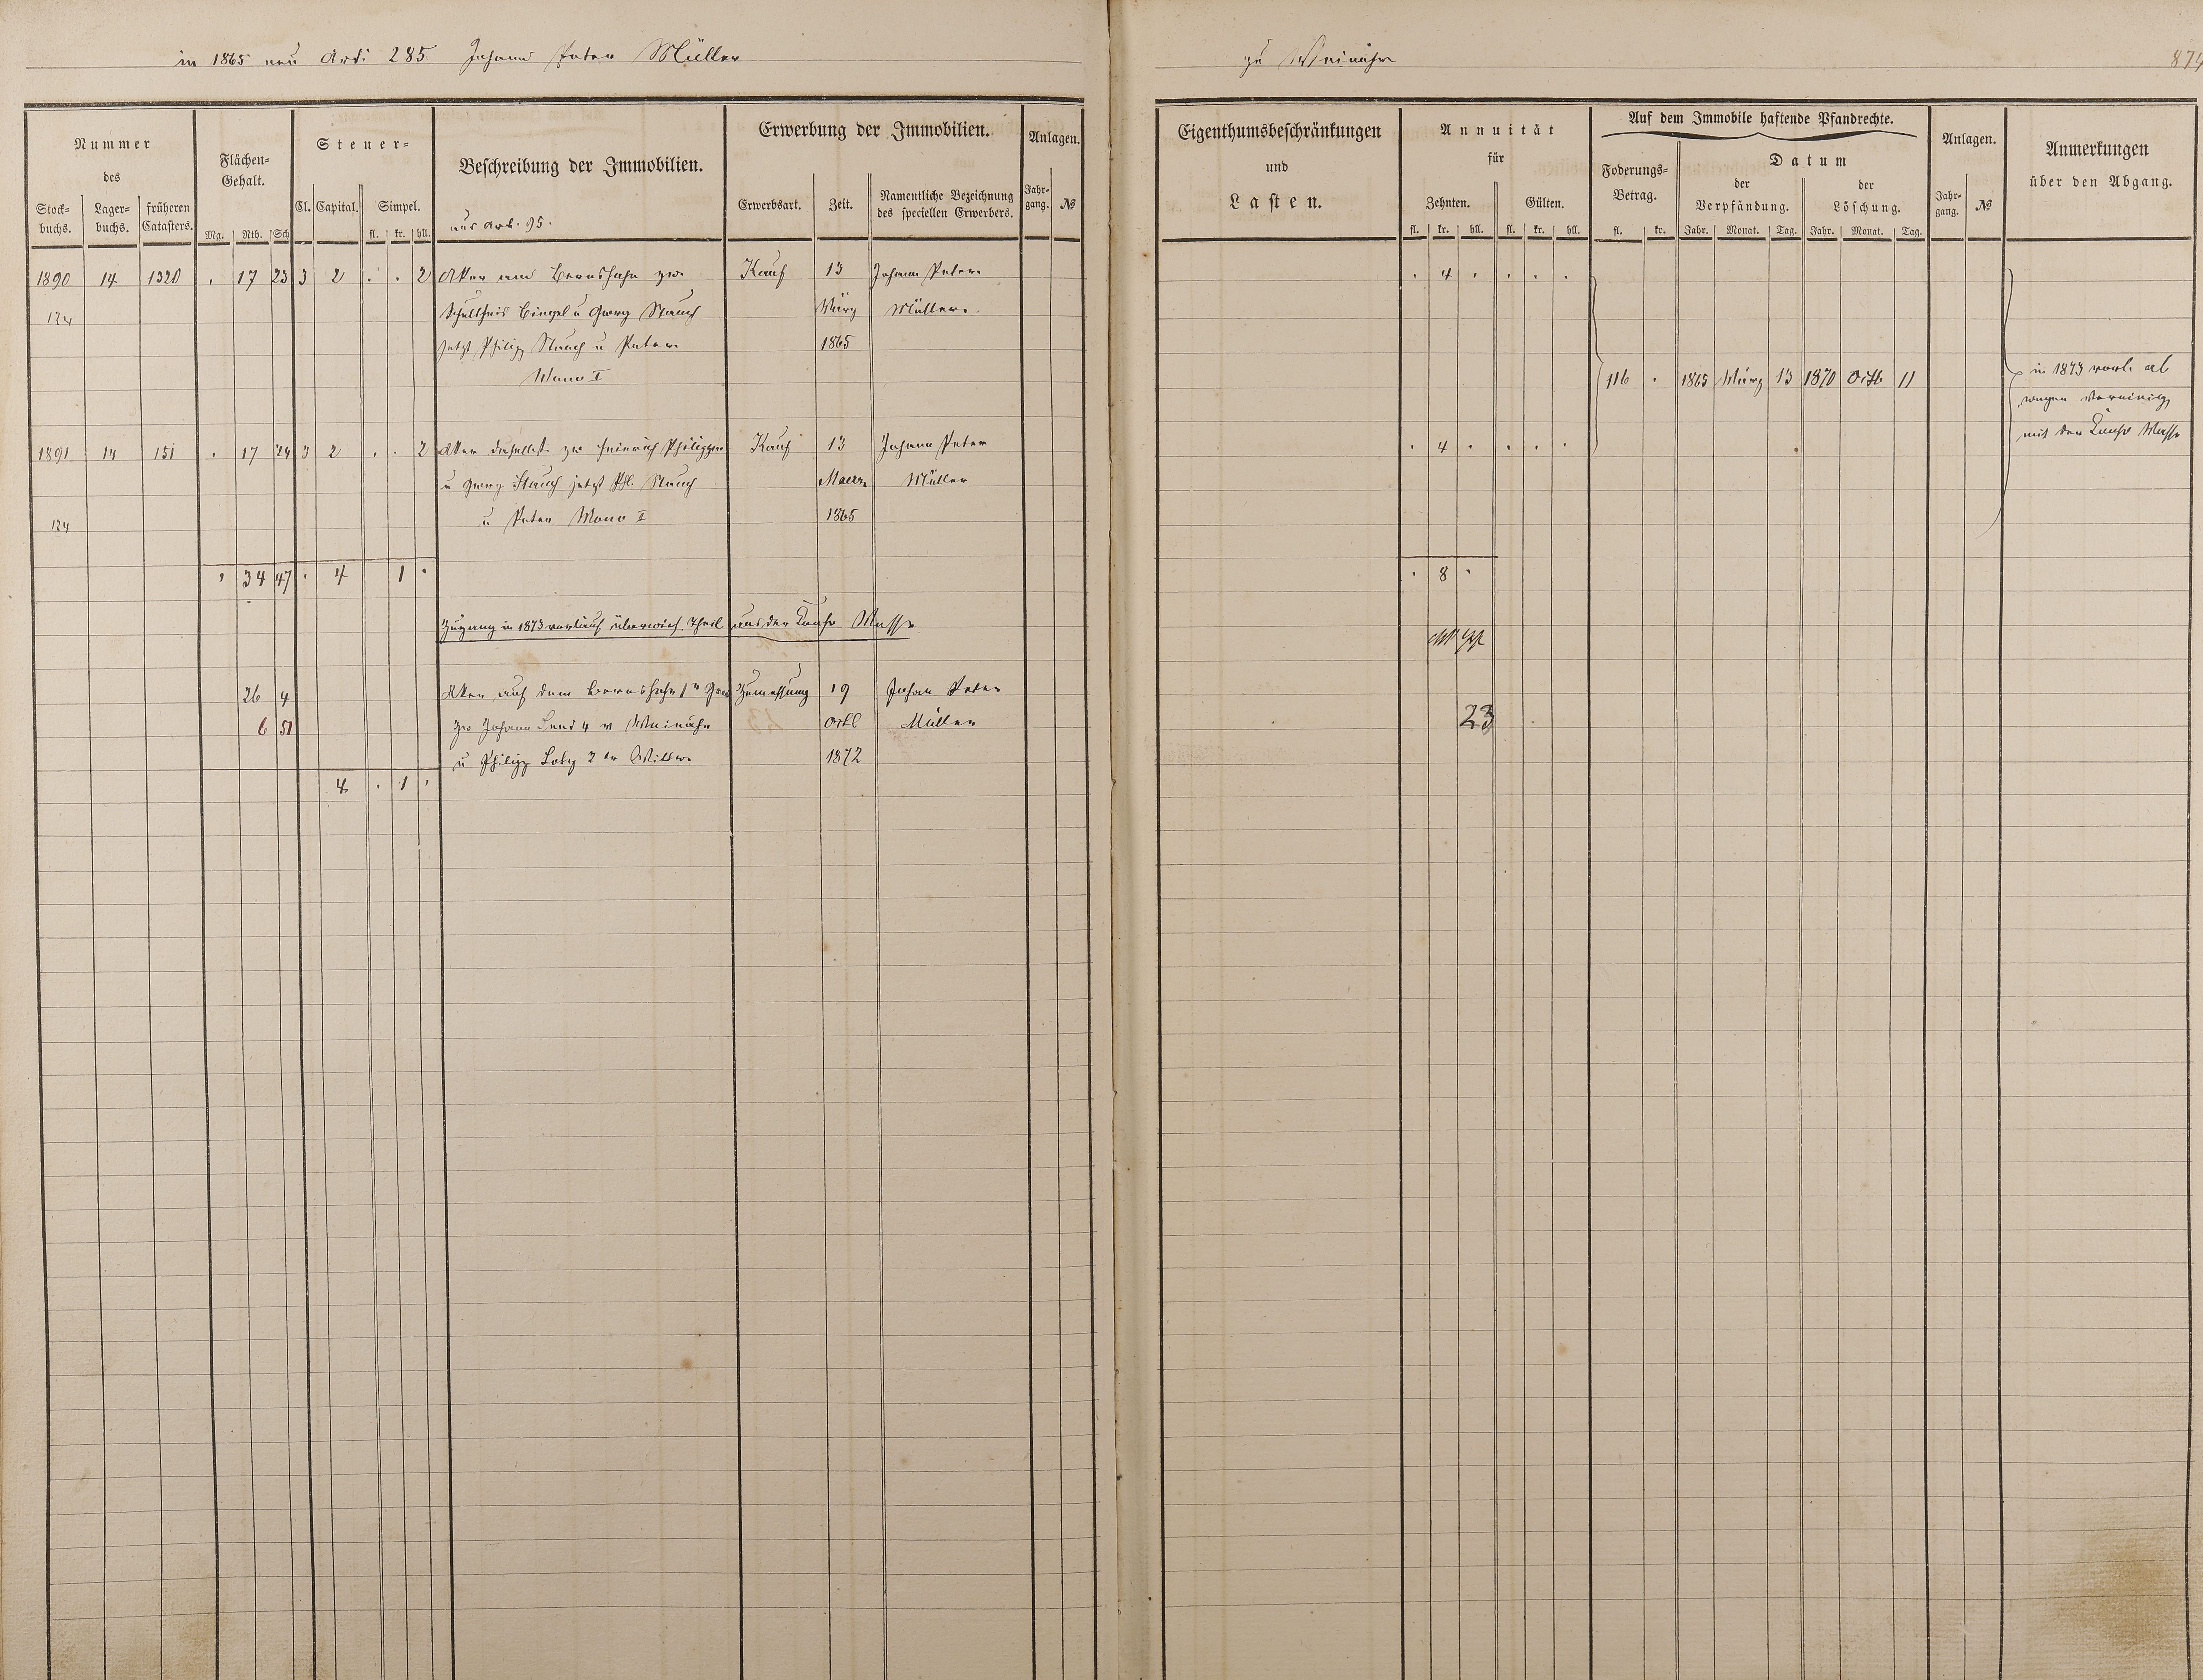 in 1865 neu Arti 285. Johann Peter Müller
Nummer
des
Stock-
buchs.
Lager-
buchs.
früheren
Catasters.
Flächen-
Gehalt.
Mg. Rth. Sch
Steuer-
Cl. Capital. Simpel.
fl. kr. hll.
Beschreibung der Immobilien.
aus Art. 95.
Erwerbung der Immobilien.
Erwerbsart. Zeit.
Namentliche Bezeichnung
des speciellen Erwerbers.
Anlagen.
Jahr-
gang. №
1890 14 1320 . 17 23 3 2 . . 2 Aker Kauf 13 Johann Peter
124 Schultheis u Georg Stauch März Müller
jetzt Philipp Stauch u Peter 1865
Mono I
1891 14 151 . 17 24 3 2 . . 2 Aker daselbst zw Heinrich Philippen Kauf 13 Johann Peter
u Georg Stauch jetzt Phl. Stauch Maerz Müller
124 u Peter Mono I 1865
. 34 47 . 4 1 .
Zugang in 1873 Theil aus der Masse
26 4 Aker auf dem Zumessung 19 Johan Peter
6 51 zw Johann 4 v Weinähr Octb Müller
u Philipp 2 Wittwe 1872
4 . 1 .
zu Weinähr
874
Eigenthumsbeschränkungen
und
Lasten.
Annuität
für
Zehnten. Gülten.
fl. kr. hll. fl. kr. hll.
Auf dem Immobile haftende Pfandrechte.
Foderungs-
Betrag.
fl. kr.
Datum
der
Verpfändung.
Jahr. Monat. Tag.
der
Löschung.
Jahr. Monat. Tag.
Anlagen.
Jahr-
gang. №
Anmerkungen
über den Abgang.
. 4 . . . .
116 . 1865 März 13 1870 Octb 11 in 1873 ab
wegen Vereinig
mit der Masse
. 4 . . . .
. 8 .
23